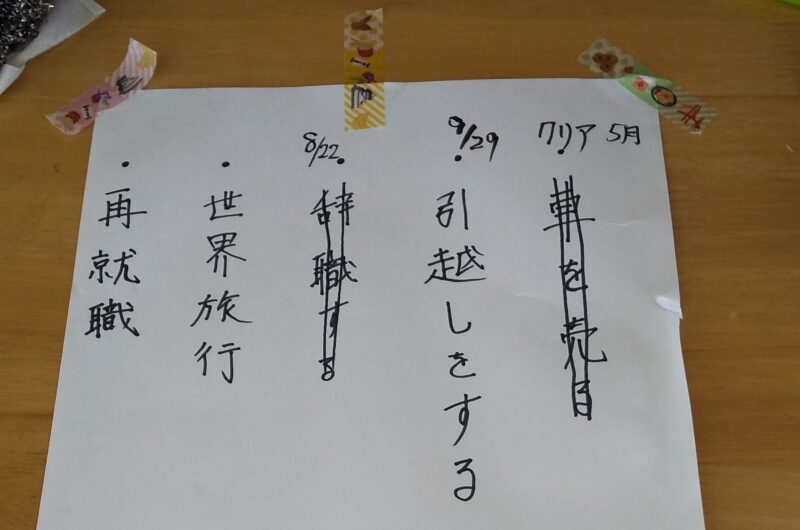 クリア 5月
・車を売る
9/29
・引越しをする
8/22
・辞職する
・世界旅行
・再就職